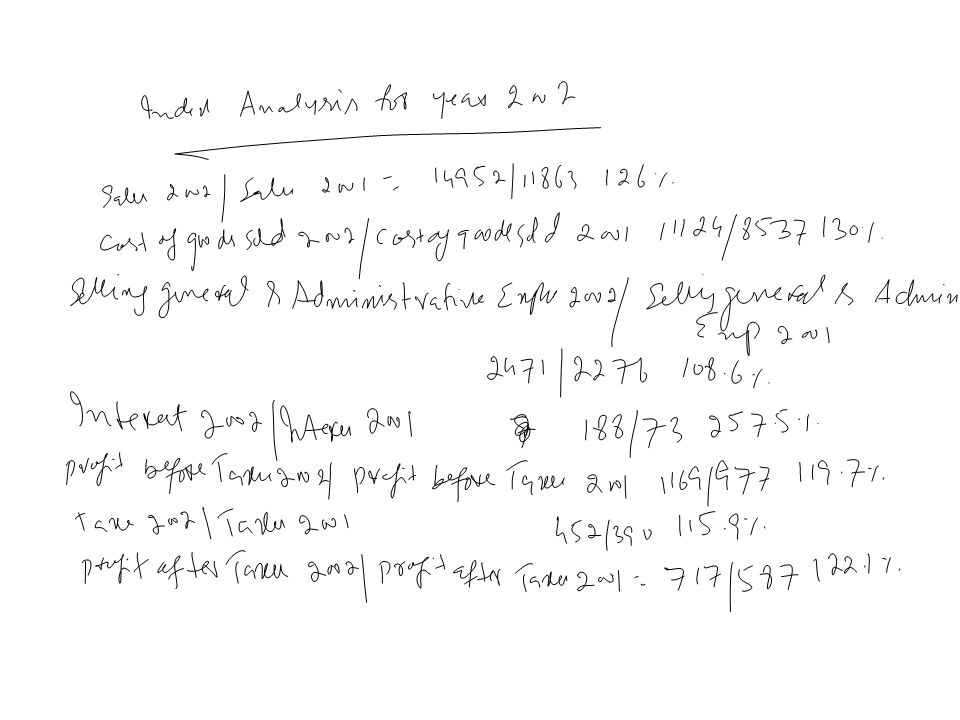 Index Analysis for year 2002
Sales 2002 / Sales 2001 = 14952/11863 126%
Cost of goods sold 2002 / Cost of goods sold 2001 11124/8537 130%
Selling general & Administrative Exp 2002 / Selling general & Admin
Exp 2001
2471/2276 108.6%
Interest 2002 / Interest 2001 188/73 257.5%
Profit before Taxes 2002 / profit before Taxes 2001 1169/977 119.7%
Taxes 2002 / Taxes 2001 452/390 115.9%
Profit after Taxes 2002 / profit after Taxes 2001 = 717/587 122.1%